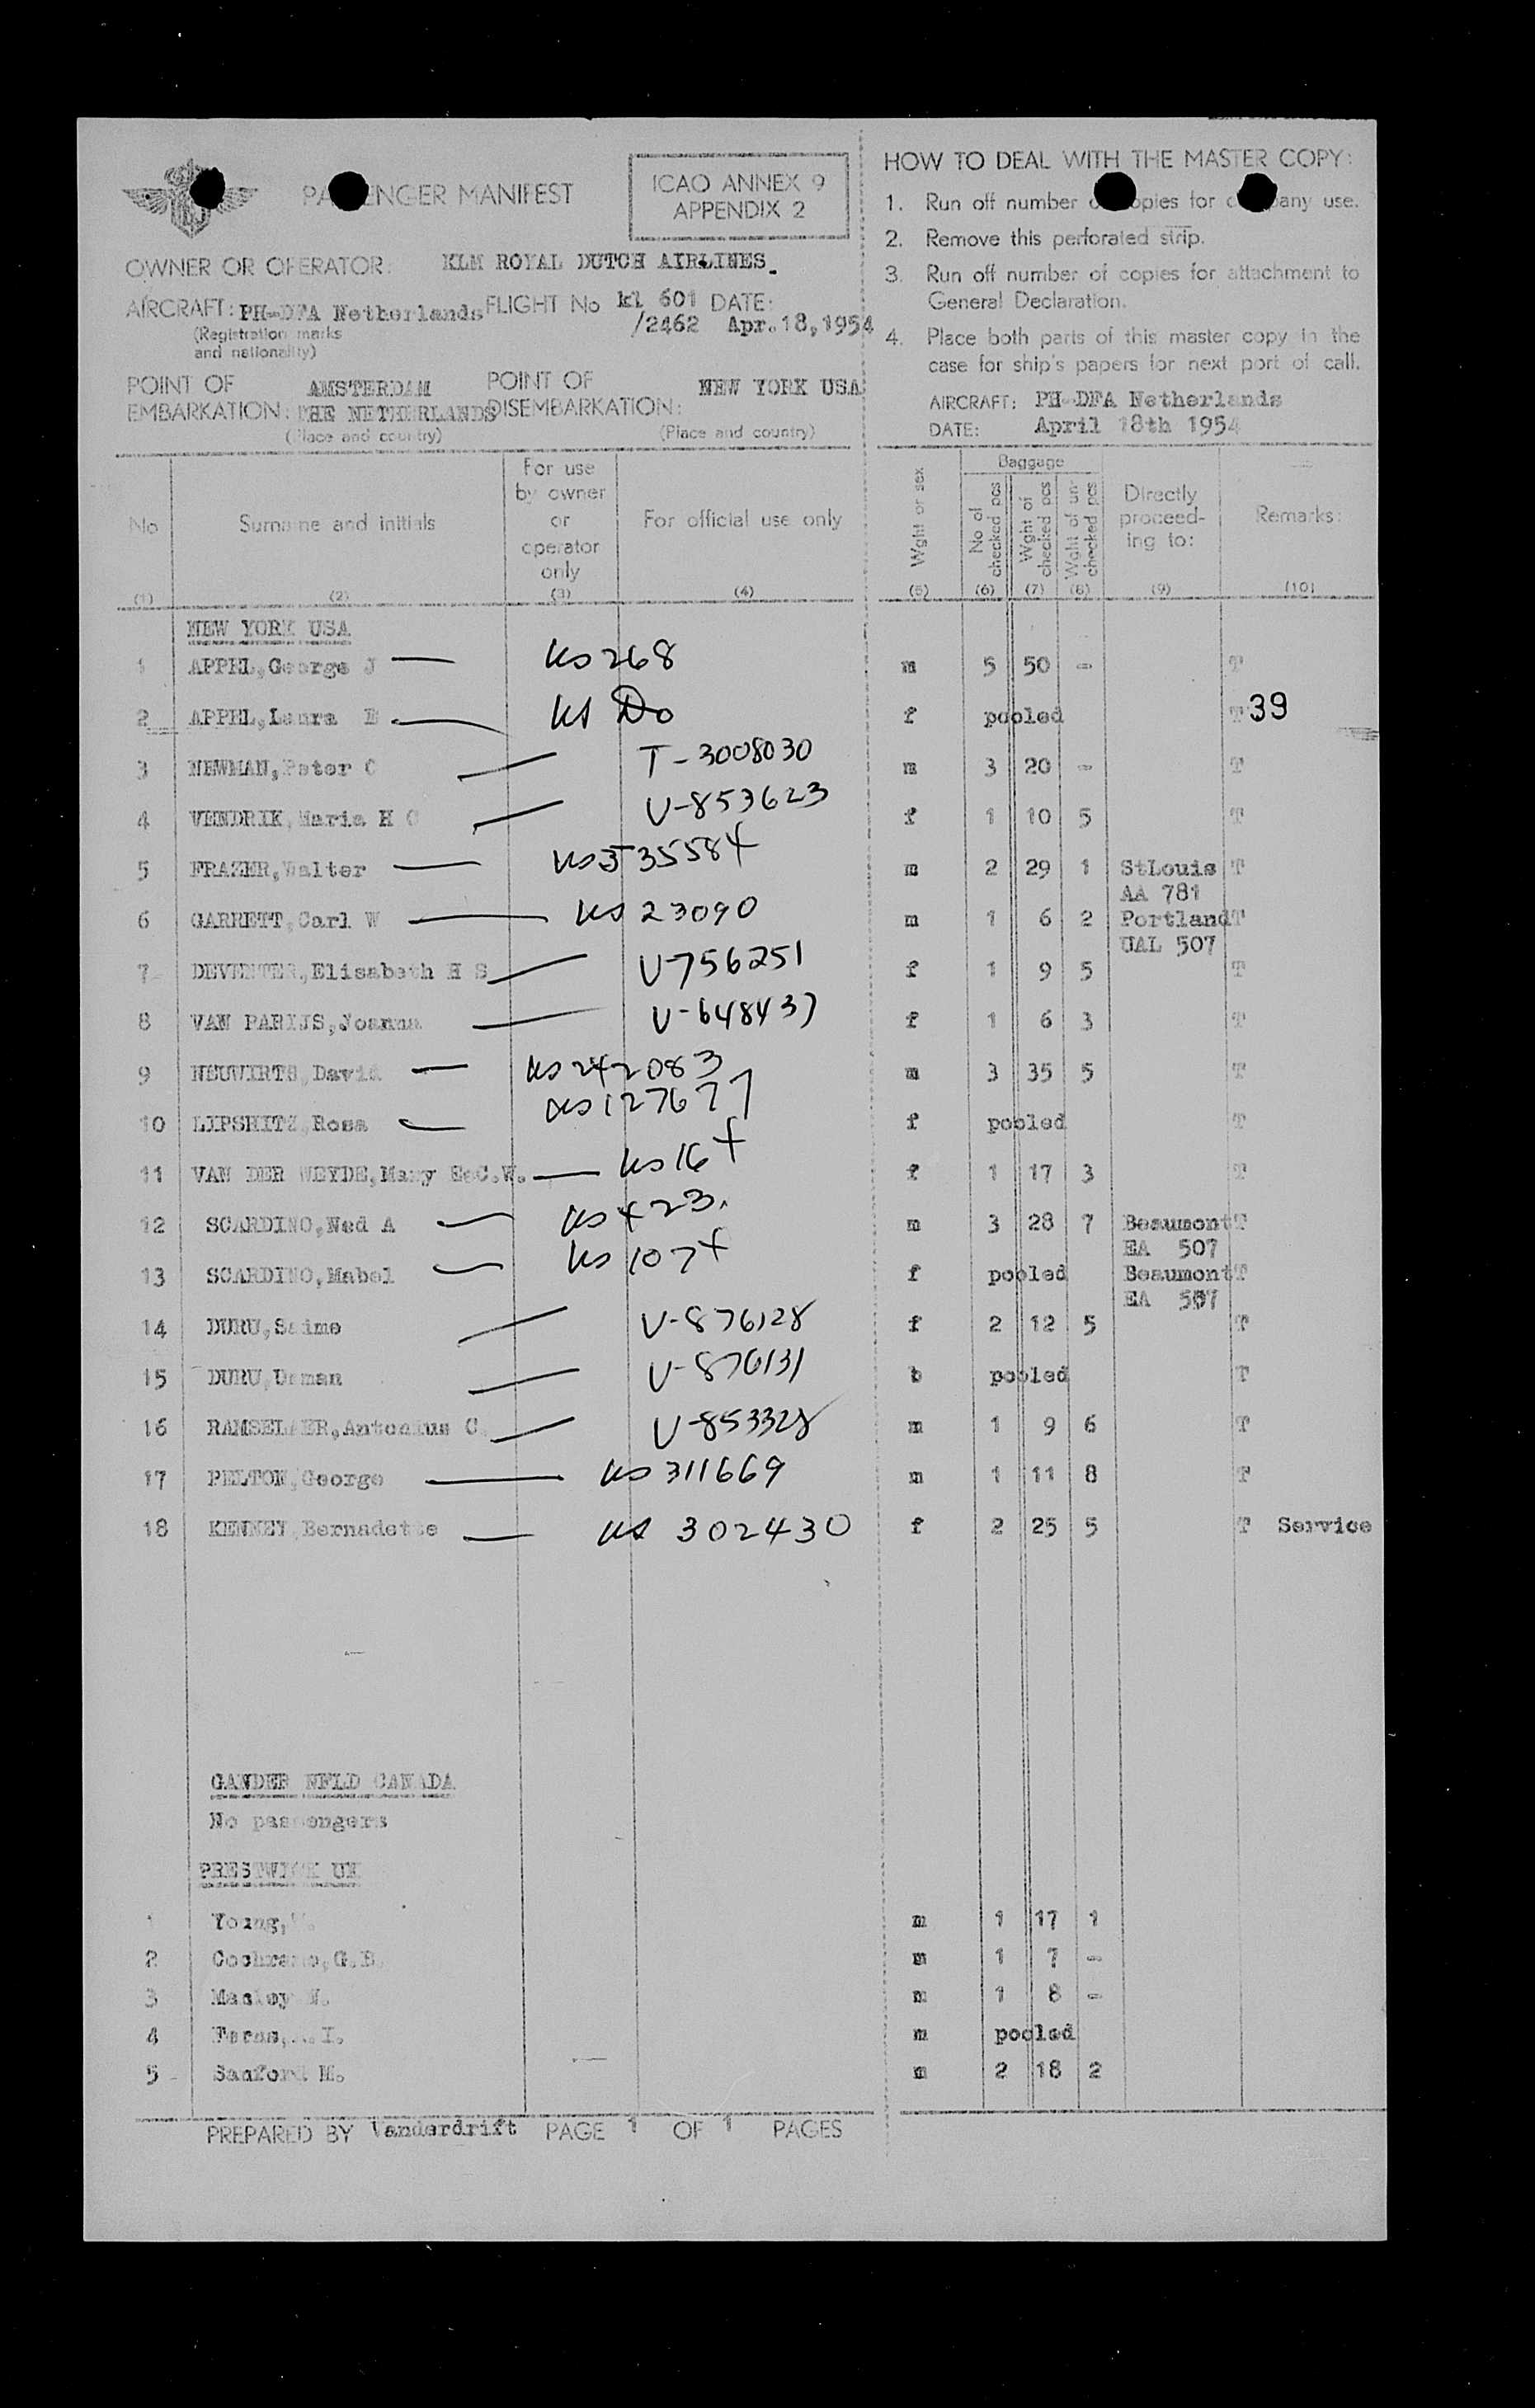 PASSENGER MANIFEST
ICAO ANNEX 9
APPENDIX 2
OWNER OR OPERATOR: KLM ROYAL DUTCH AIRLINES.
AIRCRAFT: PH-DFA Netherlands FLIGHT No kl 601 DATE:
/2462 Apr.18,1954
(Registration marks
and nationality)
POINT OF AMSTERDAM POINT OF NEW YORK USA
EMBARKATION: THE NETHERLANDS DISEMBARKATION:
(Place and country) (Place and country)
HOW TO DEAL WITH THE MASTER COPY:
1. Run off number of copies for company use.
2. Remove this perforated strip.
3. Run off number of copies for attachment to
General Declaration.
4. Place both parts of this master copy in the
case for ship's papers for next port of call.
AIRCRAFT: PH-DFA Netherlands
DATE: April 18th 1954
No Surname and initials For use by owner or operator only For official use only Wght or sex Baggage No of checked pcs Wght of checked pcs Wght of un-checked pcs Directly proceed-ing to: Remarks:
(1) (2) (3) (4) (5) (6) (7) (8) (9) (10)
NEW YORK USA
1 APPEL,George J — US 268 m 5 50 - T
2 APPEL,Laura E — US Do f pooled T 39
3 NEWMAN,Peter C — T-3008030 m 3 20 - T
4 VENDRIK,Maria H C — V-853623 f 1 10 5 T
5 FRAZER,Walter — US 535584 m 2 29 1 StLouis T
AA 781
6 GARRETT,Carl W — US 23090 m 1 6 2 Portland T
UAL 507
7 DEVENTER,Elisabeth H S — V-756251 f 1 9 5 T
8 VAN PARIJS,Joanna — V-648437 f 1 6 3 T
9 NEUWIRTS,David — US 242083 m 3 35 5 T
10 LIPSHITZ,Rosa — US 127677 f pooled T
11 VAN DER WEYDE,Mary E.C.W. — US 16 f 1 17 3 T
12 SCARDINO,Ned A — US 423. m 3 28 7 Beaumont T
EA 507
13 SCARDINO,Mabel — US 107 f pooled Beaumont T
EA 507
14 DURU,Saime — V-876128 f 2 12 5 T
15 DURU,Osman — V-876131 b pooled T
16 RAMSELAER,Antonius C. — V-853328 m 1 9 6 T
17 PELTON,George — US 311669 m 1 11 8 T
18 KENNEY,Bernadette — US 302430 f 2 25 5 T Service
GANDER NFLD CANADA
No passengers
PRESTWICK UK
1 Young, m 1 17 1
2 Cochrane,G.B. m 1 7 -
3 Manley m 1 8 -
4 m pooled
5 Sanford M. m 2 18 2
PREPARED BY Vanderdrift PAGE 1 OF 1 PAGES